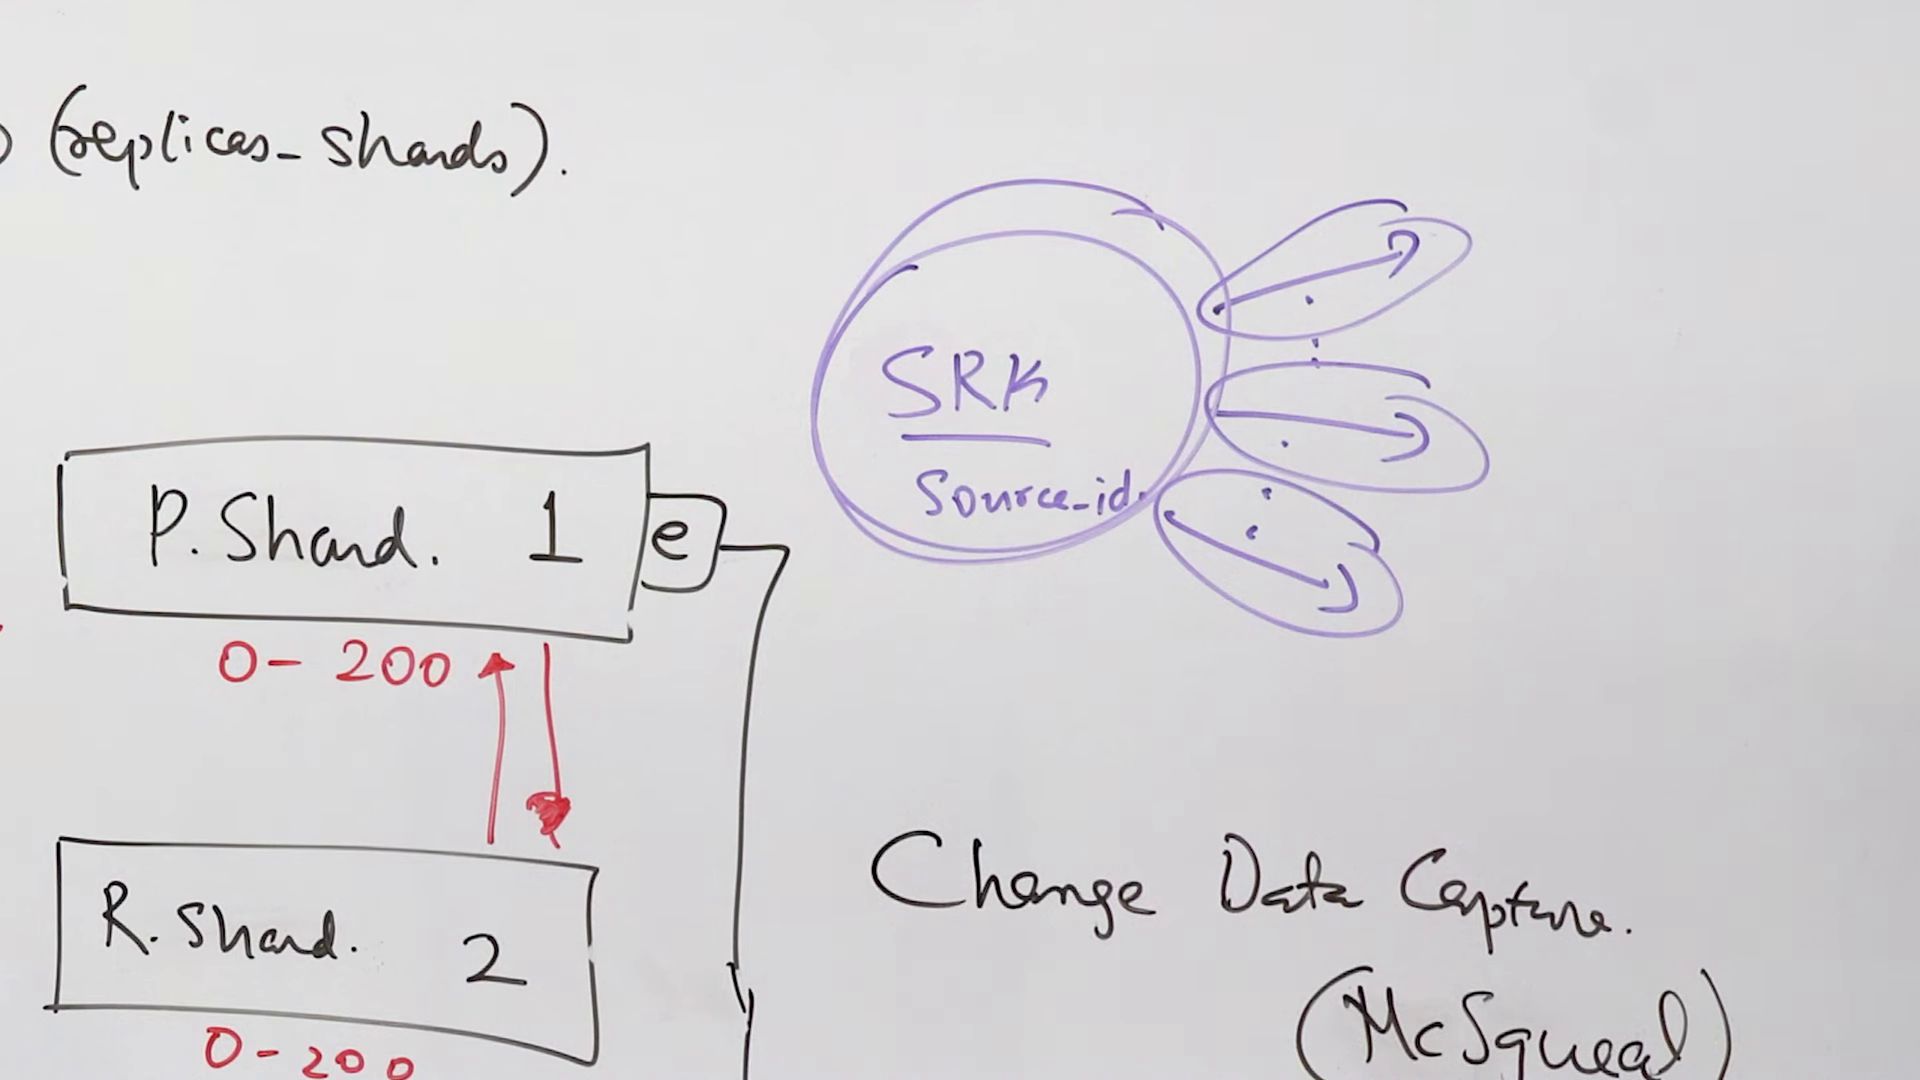 (replicas_shards).
SRK
Source_id.
P. Shard. 1
e
0 - 200
R. Shard. 2
0 - 200
Change Data Capture.
(McSqueal)